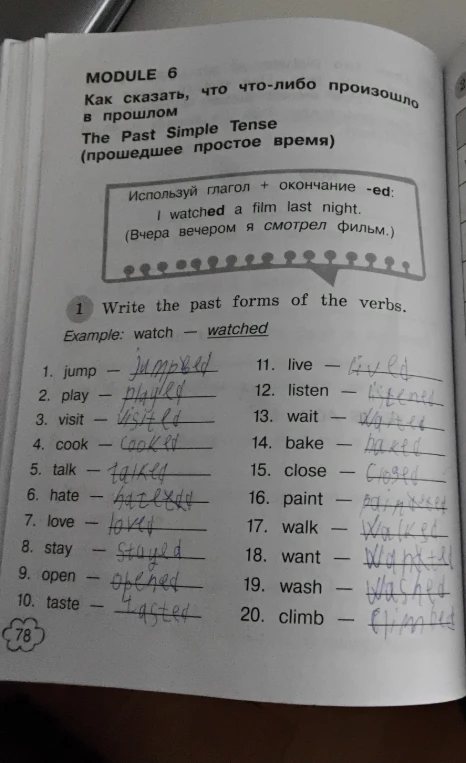 MODULE 6
Как сказать, что что-либо произошло
в прошлом
The Past Simple Tense
(прошедшее простое время)
Используй глагол + окончание -ed:
I watched a film last night.
(Вчера вечером я смотрел фильм.)
1 Write the past forms of the verbs.
Example: watch — watched
1. jump — jumped
2. play — played
3. visit — visited
4. cook — cooked
5. talk — talked
6. hate —
7. love — loved
8. stay — stayed
9. open — opened
10. taste — tasted
11. live — lived
12. listen —
13. wait —
14. bake — baked
15. close — closed
16. paint —
17. walk — walked
18. want — wanted
19. wash — washed
20. climb — climbed
78